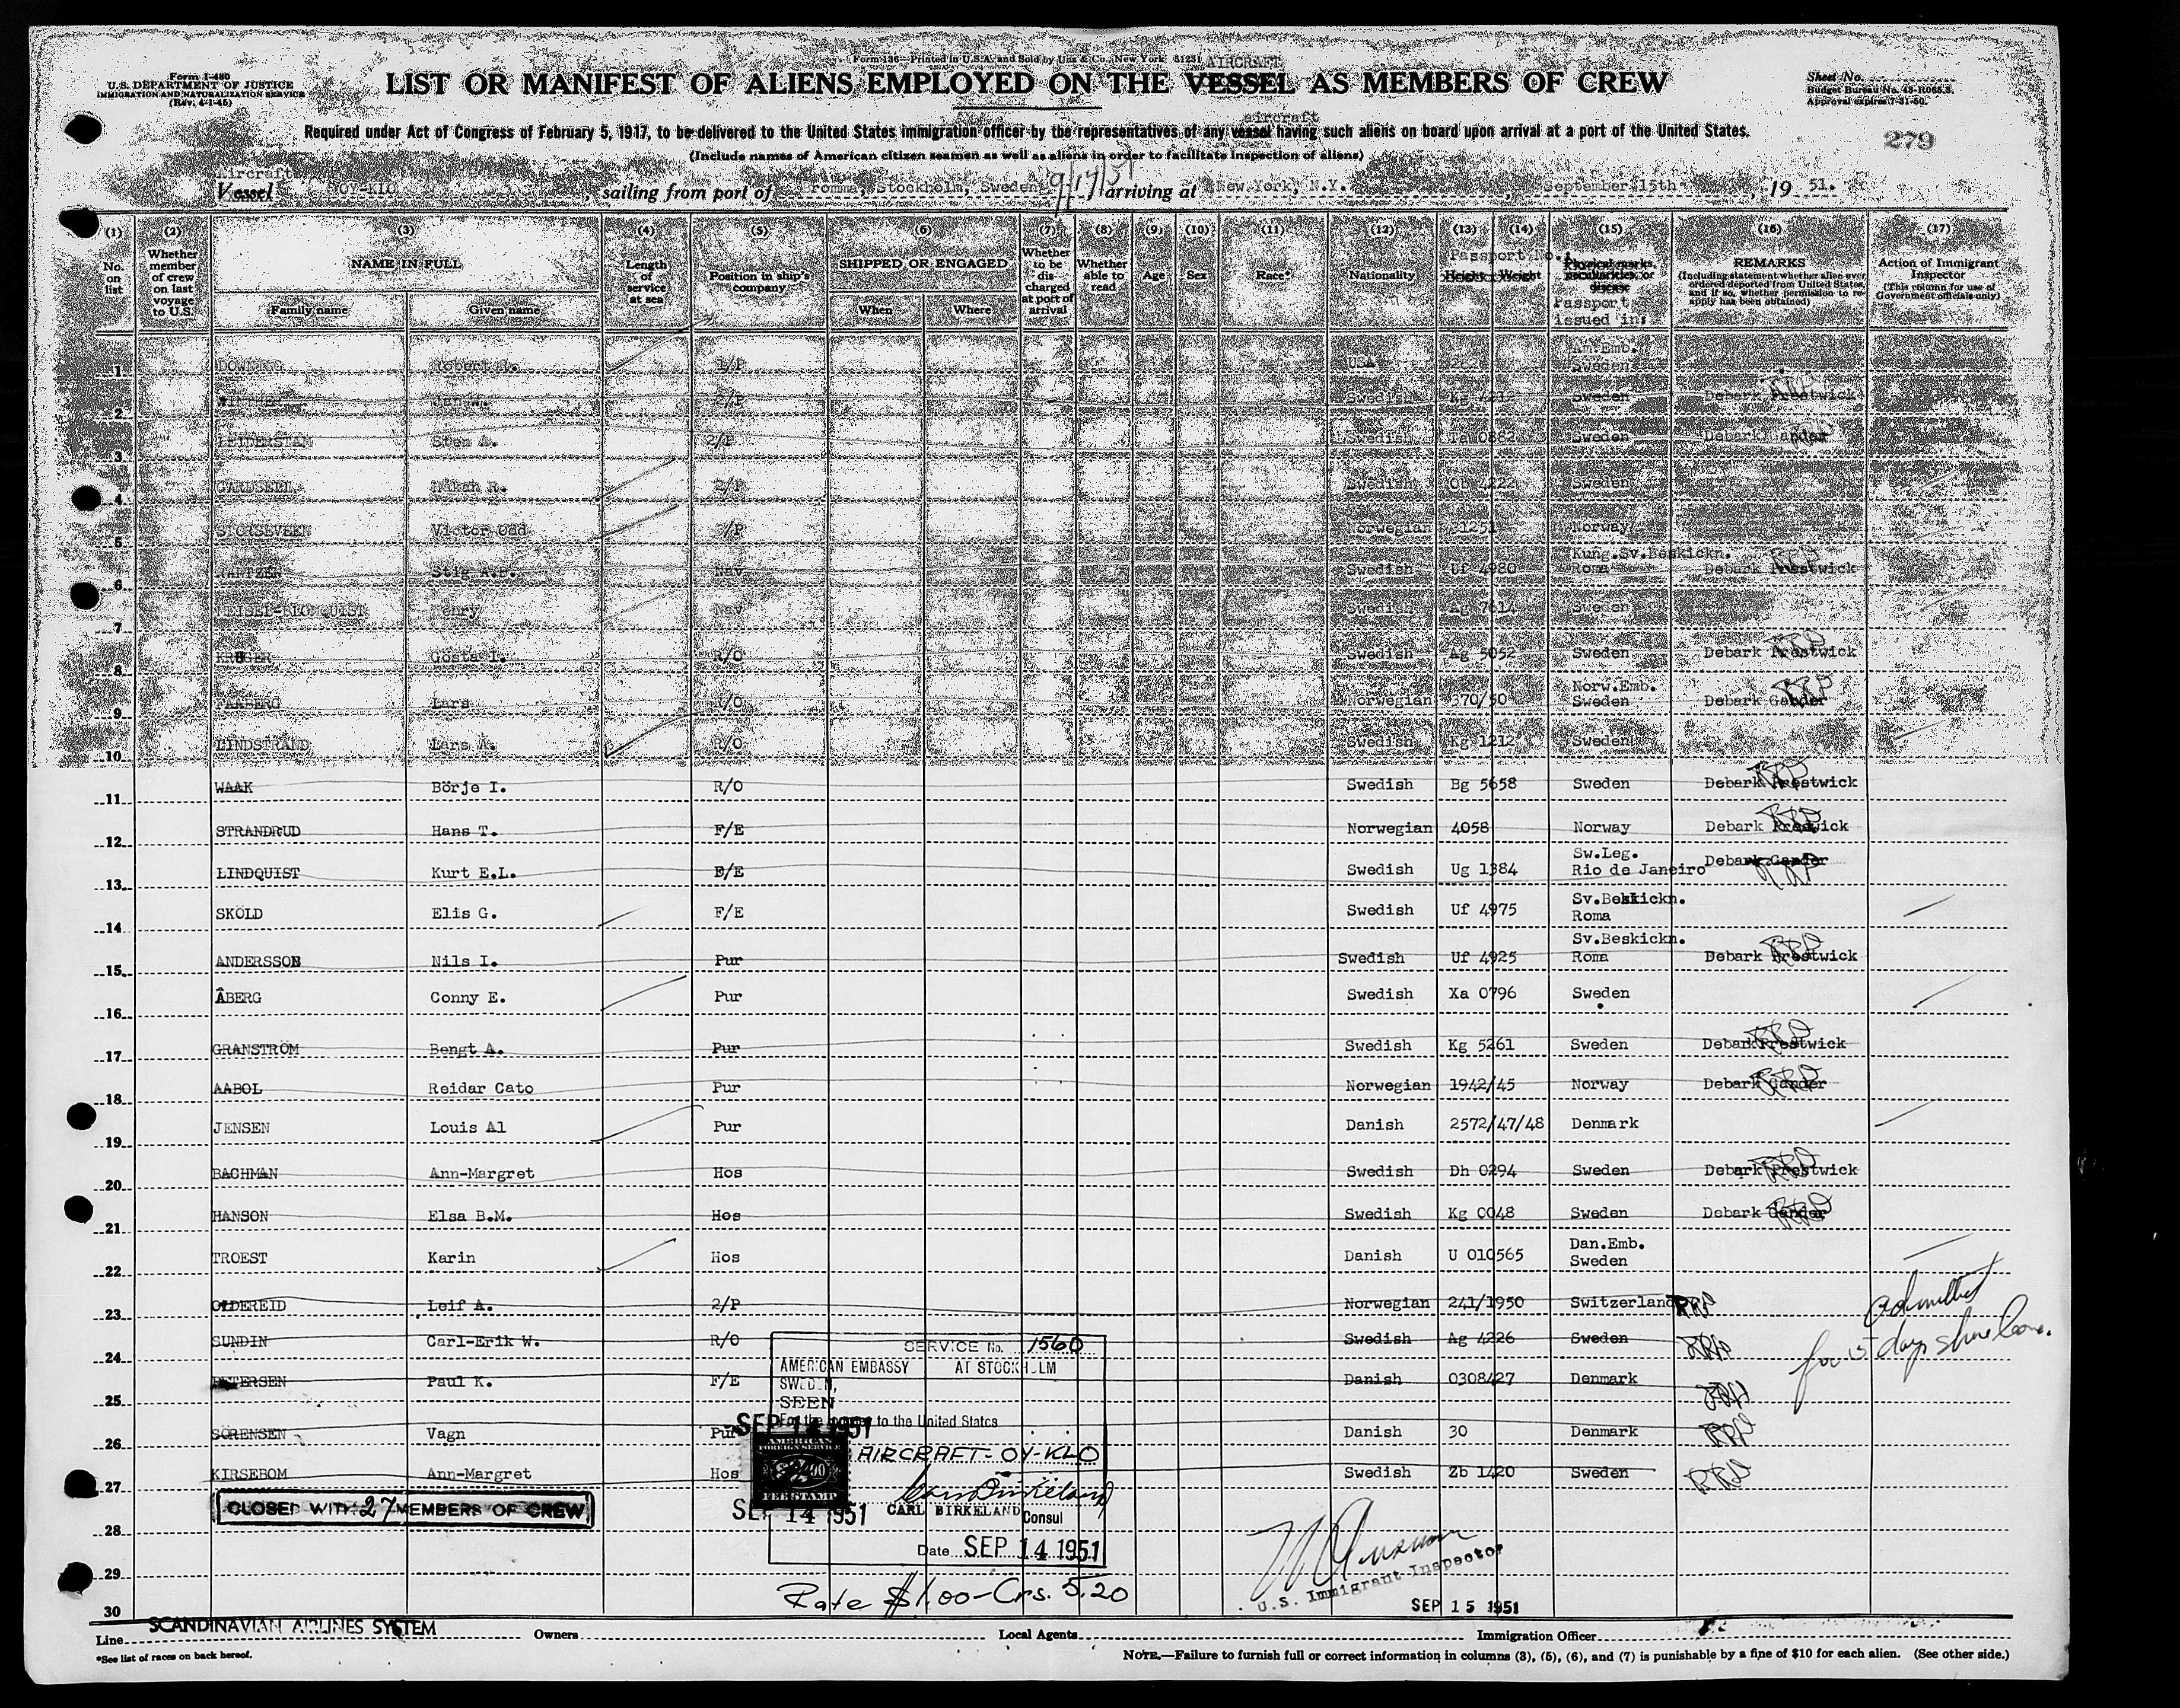 Form I-480
U.S. DEPARTMENT OF JUSTICE
IMMIGRATION AND NATURALIZATION SERVICE
(Rev. 4-1-45)
Form 136—Printed in U.S.A. and Sold by Unz & Co., New York 31231
AIRCRAFT
LIST OR MANIFEST OF ALIENS EMPLOYED ON THE VESSEL AS MEMBERS OF CREW
Sheet No.
Budget Bureau No. 43-R065.3.
Approval expires 7-31-50.
aircraft
Required under Act of Congress of February 5, 1917, to be delivered to the United States immigration officer by the representatives of any vessel having such aliens on board upon arrival at a port of the United States.
279
(Include names of American citizen seamen as well as aliens in order to facilitate inspection of aliens)
Aircraft
Vessel OY-KLO, sailing from port of romma, Stockholm, Sweden 9/17/51 arriving at New York, N.Y., September 15th, 19 51.
(1) (2) (3) (4) (5) (6) (7) (8) (9) (10) (11) (12) (13) (14) (15) (16) (17)
No. on list
Whether member of crew on last voyage to U.S.
NAME IN FULL
Family name Given name
Length of service at sea
Position in ship's company
SHIPPED OR ENGAGED
When Where
Whether to be discharged at port of arrival
Whether able to read
Age
Sex
Race*
Nationality
Passport No.
Height Weight
Physical marks, peculiarities, or disease
Passport issued in:
REMARKS
(Including statement whether alien ever ordered deported from United States, and if so, whether permission to reapply has been obtained)
Action of Immigrant Inspector
(This column for use of Government officials only)
1 Robert R. 1/P USA Am.Emb. Sweden
2 Jan 2/P Swedish Kg 4212 Sweden Debark Prestwick
3 LEIDERSTAM Sten A. 2/P Swedish Ta 0882 Sweden Debark Gander
4 GARDSELL Håkan R. 2/P Swedish Ob 4222 Sweden
5 STORSEVEEN Victor Odd /P Norwegian 21251 Norway
6 Stig A.B. Nav Swedish Uf 4980 Kung.Sv.Beskickn. Roma Debark Prestwick
7 MEISEL-BLOMQUIST Henry Nav Swedish Ag 7614 Sweden
8 KRÜGER Gösta I. R/O Swedish Ag 5052 Sweden Debark Prestwick
9 FAABERG Lars R/O Norwegian 370/50 Norw.Emb. Sweden Debark Gander
10 LINDSTRAND Lars A. R/O Swedish Kg 1212 Sweden
11 WAAK Börje I. R/O Swedish Bg 5658 Sweden Debark Prestwick
12 STRANDRUD Hans T. F/E Norwegian 4058 Norway Debark Prestwick
13 LINDQUIST Kurt E.L. F/E Swedish Ug 1384 Sw.Leg. Rio de Janeiro Debark Gander
14 SKÖLD Elis G. F/E Swedish Uf 4975 Sv.Beskickn. Roma
15 ANDERSSON Nils I. Pur Swedish Uf 4925 Sv.Beskickn. Roma Debark Prestwick
16 ÅBERG Conny E. Pur Swedish Xa 0796 Sweden
17 GRANSTRÖM Bengt A. Pur Swedish Kg 5261 Sweden Debark Prestwick
18 AABOL Reidar Cato Pur Norwegian 1942/45 Norway Debark Gander
19 JENSEN Louis Al Pur Danish 2572/47/48 Denmark
20 BACHMAN Ann-Margret Hos Swedish Dh 0294 Sweden Debark Prestwick
21 HANSON Elsa B.M. Hos Swedish Kg 0048 Sweden Debark Gander
22 TROEST Karin Hos Danish U 010565 Dan.Emb. Sweden
23 OLDEREID Leif A. 2/P Norwegian 241/1950 Switzerland
24 SUNDIN Carl-Erik W. R/O Swedish Ag 4226 Sweden
25 PETERSEN Paul K. F/E Danish 0308/27 Denmark
26 SÖRENSEN Vagn Pur Danish 30 Denmark
27 KIRSEBOM Ann-Margret Hos Swedish Zb 1420 Sweden
28
29
30
admitted
for 5 days shore leave.
CLOSED WITH 27 MEMBERS OF CREW
SERVICE No. 1560
AMERICAN EMBASSY AT STOCKHOLM
SWEDEN,
SEEN
For the journey to the United States
SEP 14 1951
AIRCRAFT - OY-KLO
AMERICAN
FOREIGN SERVICE
FEE STAMP
SEP 14 1951
CARL BIRKELAND Consul
Date SEP 14 1951
Rate $1.00 - Crs. 5.20
U.S. Immigrant Inspector
SEP 15 1951
SCANDINAVIAN AIRLINES SYSTEM
Line Owners Local Agents Immigration Officer
*See list of races on back hereof.
NOTE.—Failure to furnish full or correct information in columns (3), (5), (6), and (7) is punishable by a fine of $10 for each alien. (See other side.)